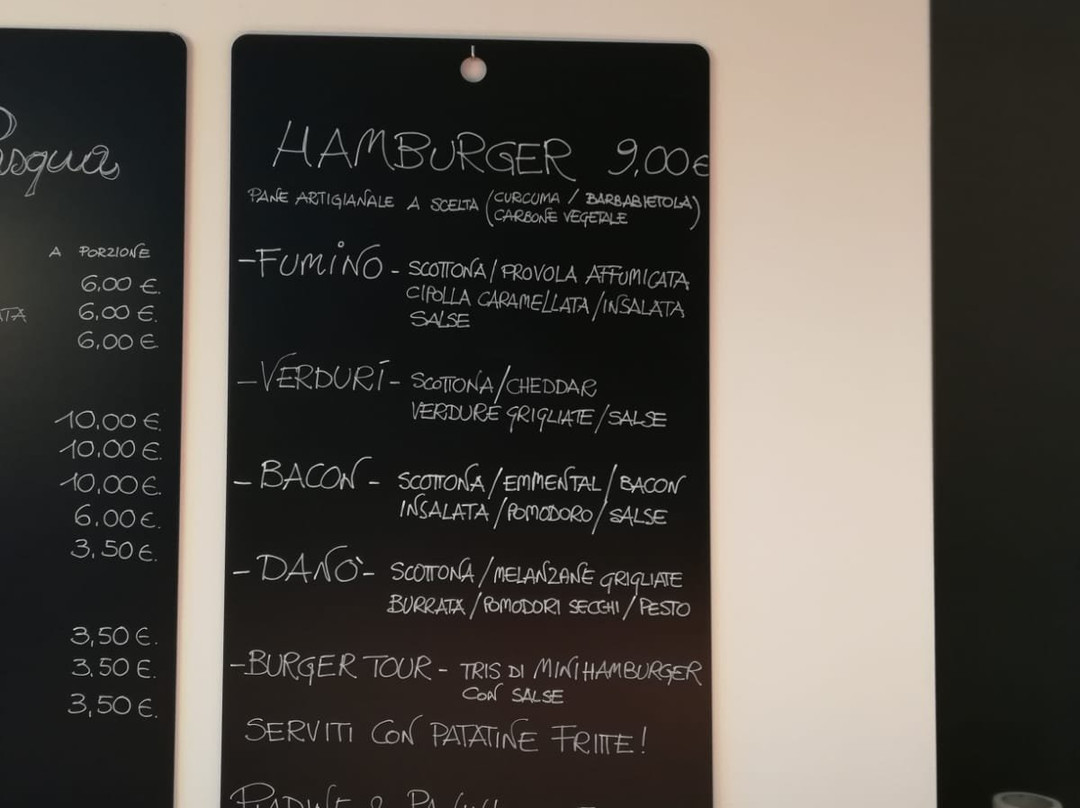 A PORZIONE
6,00 €.
6,00 €.
6,00 €
10,00 €.
10,00 €.
10,00 €.
6.00 €.
3.50 €.
3,50 €.
3.50 €.
3,50 €.
HAMBURGER 9,00€
PANE ARTIGIANALE A SCELTA (CURCUMA / BARBABIETOLA)
CARBONE VEGETALE
-FUMINO - SCOTTONA/PROVOLA AFFUMICATA
CIPOLLA CARAMELLATA/INSALATA
SALSE
-VERDURÍ- SCOTTONA/CHEDDAR
VERDURE GRIGLIATE/SALSE
- BACON - SCOTTONA/EMMENTAL/BACON
INSALATA/POMODORO/SALSE
- DANO'- SCOTTONA/MELANZANE GRIGLIATE
BURRATA/POMODORI SECCHI/PESTO
-BURGER TOUR - TRIS DI MINIHAMBURGER
CON SALSE
SERVITI CON PATATINE FRITTE!